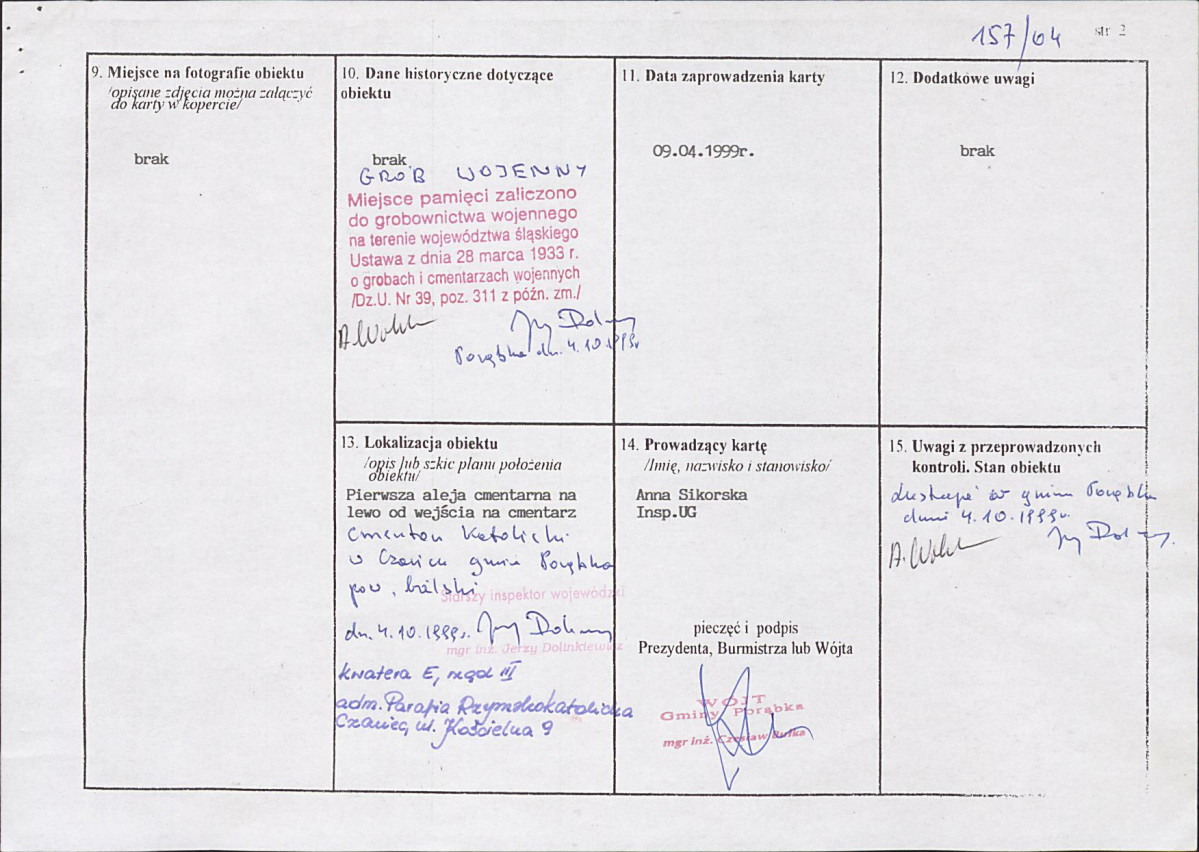 157/04
str 2
9. Miejsce na fotografie obiektu
/opisane zdjęcia można załączyć
do karty w kopercie/
brak
10. Dane historyczne dotyczące
obiektu
brak
GRÓB WOJENNY
Miejsce pamięci zaliczono
do grobownictwa wojennego
na terenie województwa śląskiego
Ustawa z dnia 28 marca 1933 r.
o grobach i cmentarzach wojennych
/Dz.U. Nr 39, poz. 311 z późn. zm./
Porąbka dn. 4.10.1999r
11. Data zaprowadzenia karty
09.04.1999r.
12. Dodatkowe uwagi
brak
13. Lokalizacja obiektu
/opis lub szkic planu położenia
obiektu/
Pierwsza aleja cmentarna na
lewo od wejścia na cmentarz
Cmentarz Katolicki
w Czańcu gmina Porąbka
pow. bielski
Starszy inspektor wojewódzki
dn. 4.10.1999r.
mgr inż. Jerzy Dolinkiewicz
kwatera E, rząd III
adm. Parafia Rzymskokatolicka
Czaniec, ul. Kościelna 9
14. Prowadzący kartę
/Imię, nazwisko i stanowisko/
Anna Sikorska
Insp.UG
pieczęć i podpis
Prezydenta, Burmistrza lub Wójta
WÓJT
Gminy Porąbka
mgr inż. Czesław Bułka
15. Uwagi z przeprowadzonych
kontroli. Stan obiektu
w gminie Porąbka
dnia 4.10.1999r.